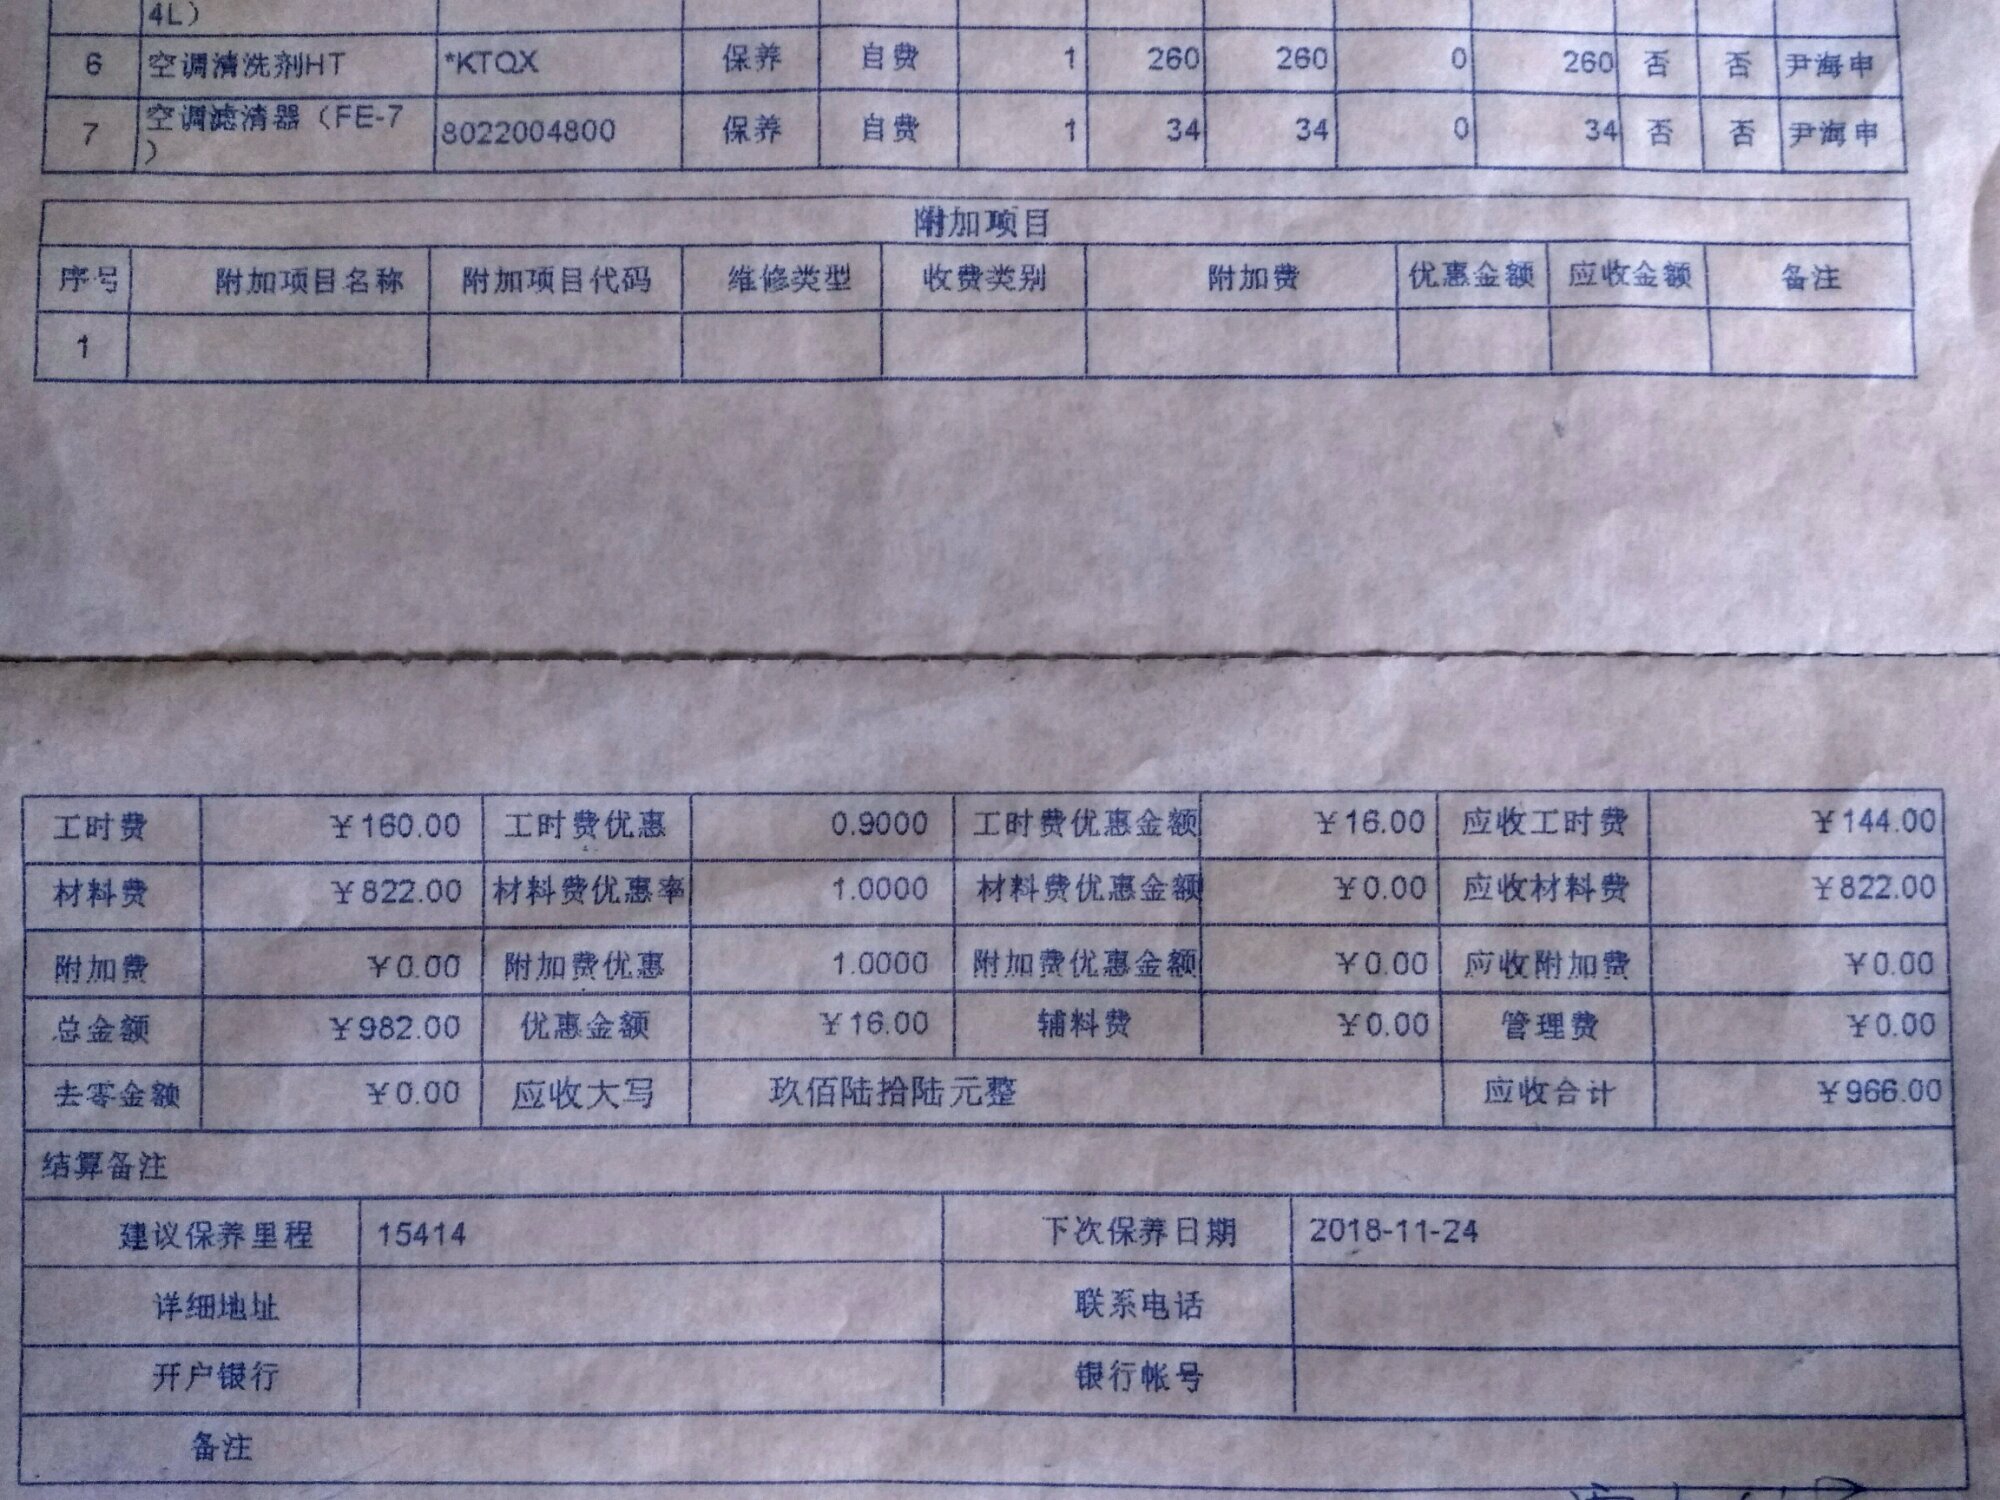 4L）
6 空调清洗剂HT *KTQX 保养 自费 1 260 260 0 260 否 否 尹海申
7 空调滤清器（FE-7） 8022004800 保养 自费 1 34 34 0 34 否 否 尹海申
附加项目
序号 附加项目名称 附加项目代码 维修类型 收费类别 附加费 优惠金额 应收金额 备注
1
工时费 ￥160.00 工时费优惠 0.9000 工时费优惠金额 ￥16.00 应收工时费 ￥144.00
材料费 ￥822.00 材料费优惠率 1.0000 材料费优惠金额 ￥0.00 应收材料费 ￥822.00
附加费 ￥0.00 附加费优惠 1.0000 附加费优惠金额 ￥0.00 应收附加费 ￥0.00
总金额 ￥982.00 优惠金额 ￥16.00 辅料费 ￥0.00 管理费 ￥0.00
去零金额 ￥0.00 应收大写 玖佰陆拾陆元整 应收合计 ￥966.00
结算备注
建议保养里程 15414 下次保养日期 2018-11-24
详细地址 联系电话
开户银行 银行帐号
备注